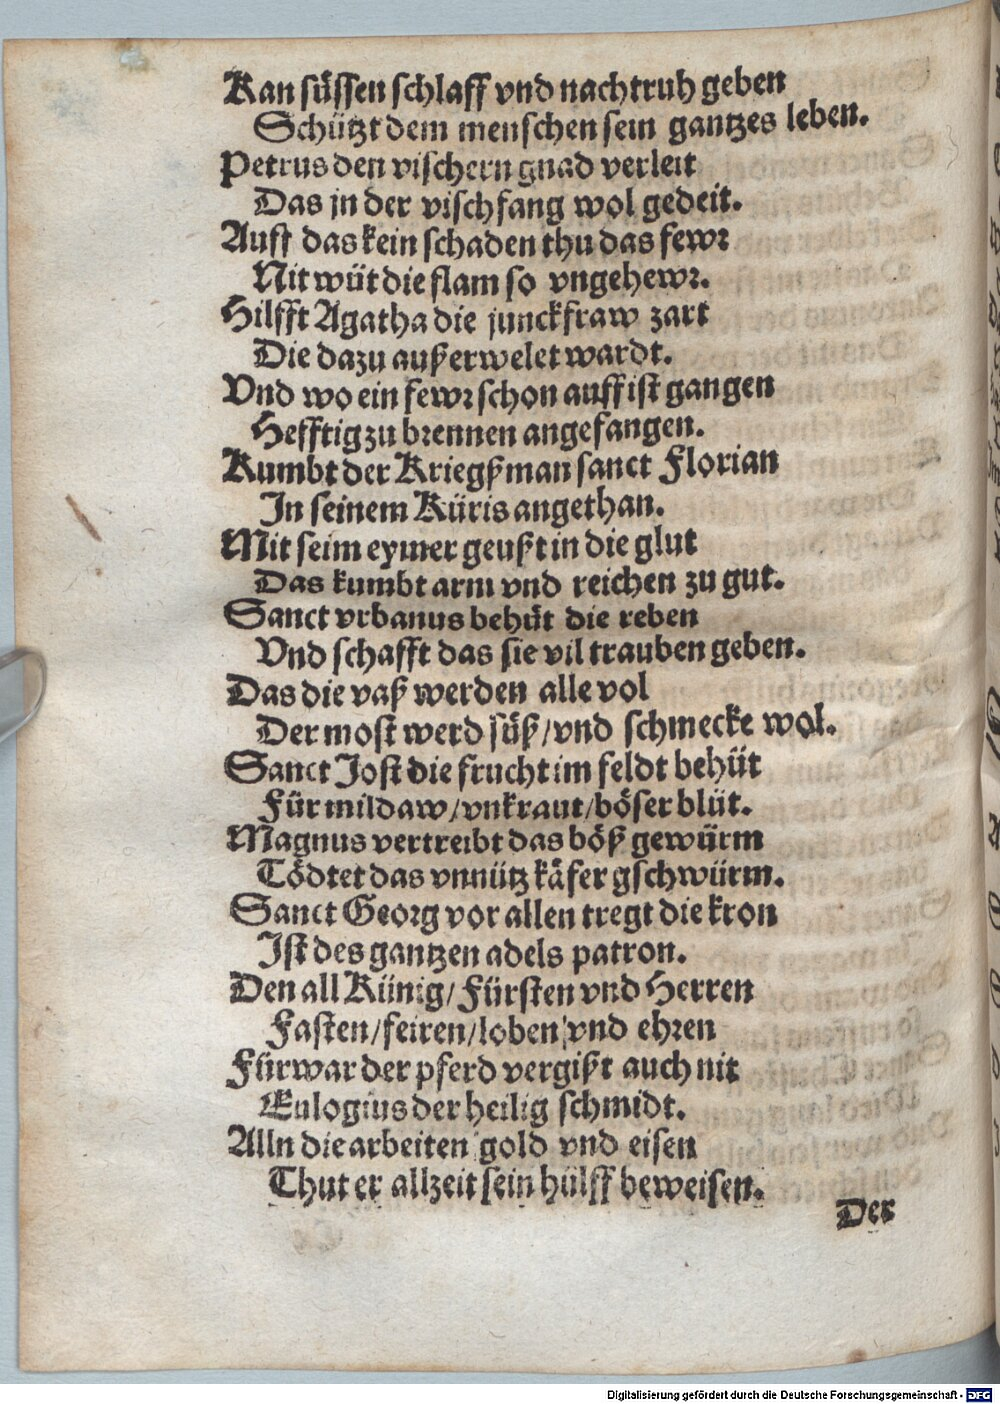 Kan süssen schlaff vnd nachtruh geben
Schützt dem menschen sein gantzes leben.
Petrus den vischern gnad verleit
Das jn der vischfang wol gedeit.
Auff das kein schaden thu das fewr
Nit wüt die flam so vngehewr.
Hilfft Agatha die junckfraw zart
Die dazu außerwelet wardt.
Vnd wo ein fewr schon auff ist gangen
Hefftig zu brennen angefangen.
Kumbt der Kriegßman sanct Florian
In seinem Küris angethan.
Mit seim eymer geußt in die glut
Das kumbt arm vnd reichen zu gut.
Sanct vrbanus behüt die reben
Vnd schafft das sie vil trauben geben.
Das die vaß werden alle vol
Der most werd süß/vnd schmecke wol.
Sanct Jost die frucht im feldt behüt
Für mildaw/vnkraut/böser blüt.
Magnus vertreibt das böß gewürm
Tödtet das vnnütz käfer gschwürm.
Sanct Georg vor allen tregt die kron
Ist des gantzen adels patron.
Den all Künig/Fürsten vnd Herren
Fasten/feiren/loben vnd ehren
Fürwar der pferd vergißt auch nit
Eulogius der heilig schmidt.
Alln die arbeiten gold vnd eisen
Thut er allzeit sein hülff beweisen.
Der
Digitalisierung gefördert durch die Deutsche Forschungsgemeinschaft - DFG